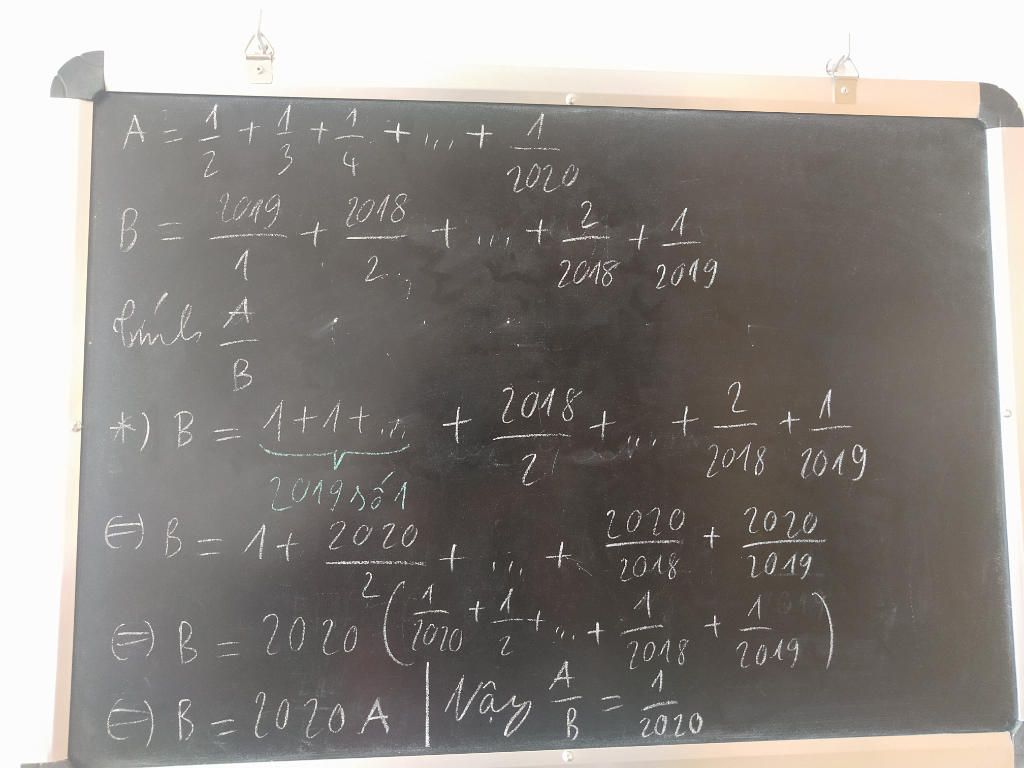 A = 1/2 + 1/3 + 1/4 + ... + 1/2020
B = 2019/1 + 2018/2 + ... + 2/2018 + 1/2019
tính A/B
*) B = 1+1+... + 2018/2 + ... + 2/2018 + 1/2019
2019 số 1
(=) B = 1 + 2020/2 + ... + 2020/2018 + 2020/2019
(=) B = 2020 (1/2020 + 1/2 + ... + 1/2018 + 1/2019)
(=) B = 2020 A | Vậy A/B = 1/2020